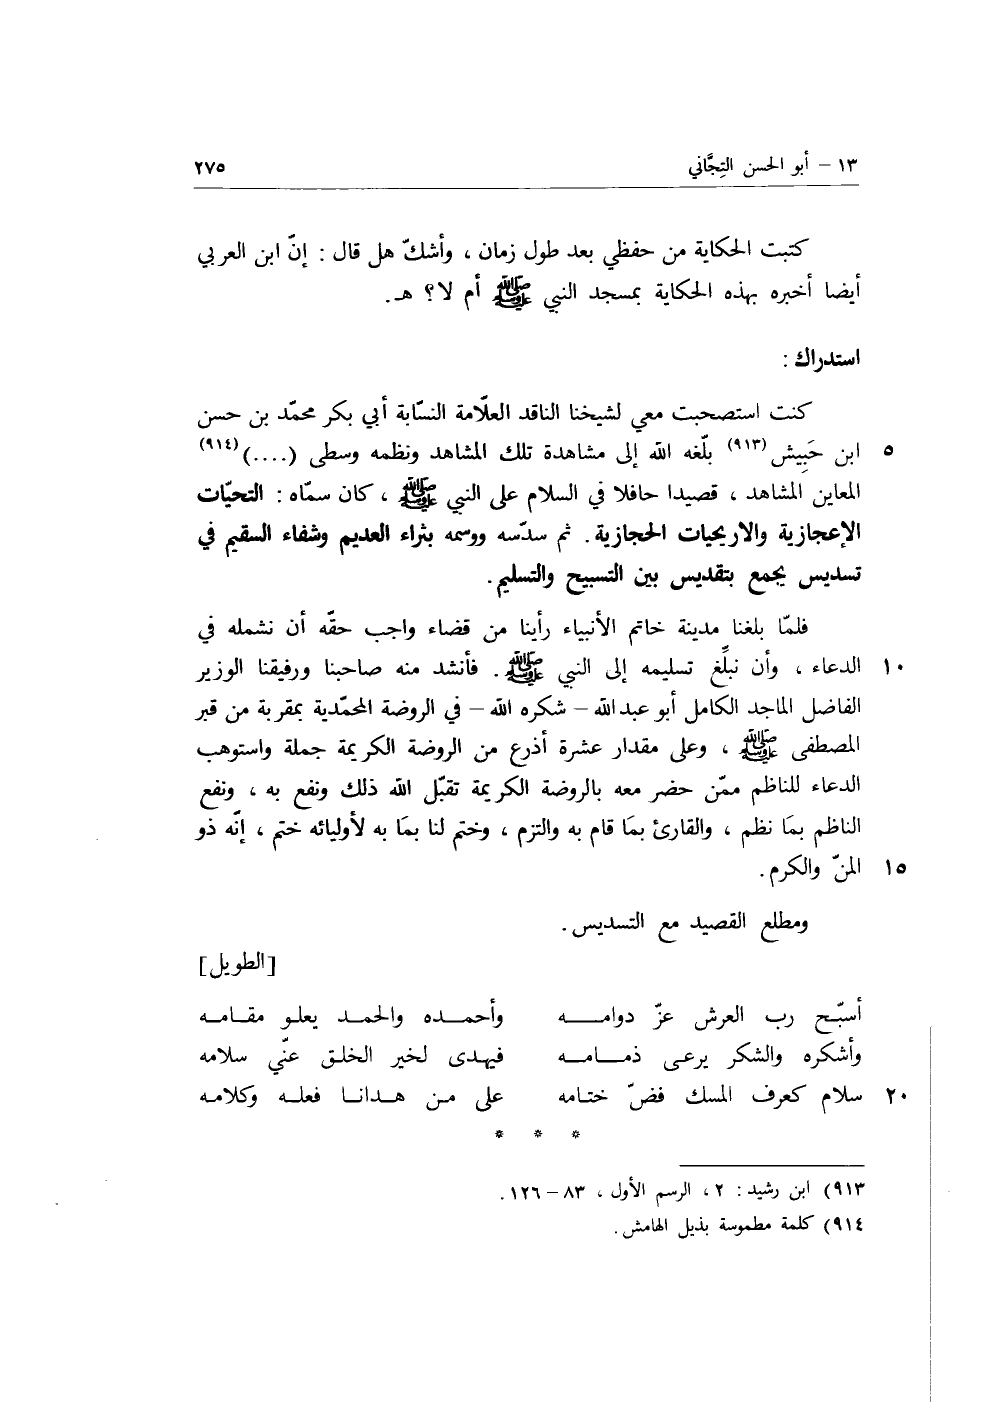 ١٣ – أبو الحسن التِجَّاني ٢٧٥
كتبت الحكاية من حفظي بعد طول زمان ، وأشكّ هل قال : إنّ ابن العربي
أيضا أخبره بهذه الحكاية بمسجد النبي ﷺ أم لا؟ هـ.
استدراك :
كنت استصحبت معي لشيخنا الناقد العلّامة النسّابة أبي بكر محمّد بن حسن
٥ ابن حَبِيش (٩١٣) بلّغه الله إلى مشاهدة تلك المشاهد ونظمه وسطى (....) (٩١٤)
المعاين المشاهد ، قصيدا حافلا في السلام على النبي ﷺ ، كان سمّاه : التحيّات
الإعجازية والاريحيات الحجازية. ثم سدّسه ووسمه بثراء العديم وشفاء السقيم في
تسديس يجمع بتقديس بين التسبيح والتسليم.
فلمّا بلغنا مدينة خاتم الأنبياء رأينا من قضاء واجب حقّه أن نشمله في
١٠ الدعاء ، وأن نبلِّغ تسليمه إلى النبي ﷺ. فأنشد منه صاحبنا ورفيقنا الوزير
الفاضل الماجد الكامل أبو عبد الله – شكره الله – في الروضة المحمّدية بمقربة من قبر
المصطفى ﷺ ، وعلى مقدار عشرة أذرع من الروضة الكريمة جملة واستوهب
الدعاء للناظم ممّن حضر معه بالروضة الكريمة تقبّل الله ذلك ونفع به ، ونفع
الناظم بمَا نظم ، والقارئ بمَا قام به والتزم ، وختم لنا بمَا به لأوليائه ختم ، إنّه ذو
١٥ المنّ والكرم.
ومطلع القصيد مع التسديس.
[الطويل]
أسبّح رب العرش عزّ دوامـــه وأحمــده والحمــد يعلــو مقــامــه
وأشكره والشكر يرعـى ذمــامــه فيهـدى لخير الخلـق عنّي سلامه
٢٠ سلام كعرف المسك فضّ ختـامه على مـن هــدانــا فعلــه وكلامـه
* * *
٩١٣) ابن رشيد : ٢ ، الرسم الأول ، ٨٣ – ١٢٦.
٩١٤) كلمة مطموسة بذيل الهامش.